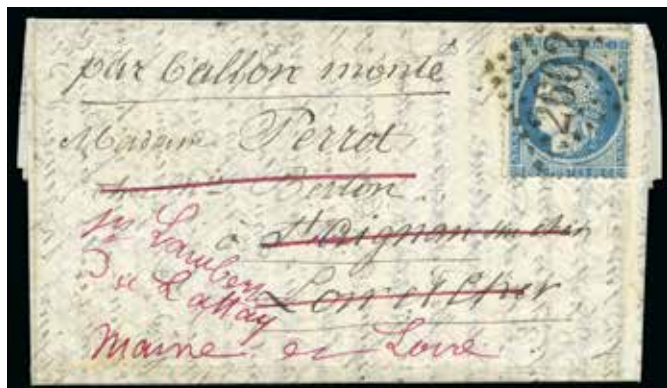 par ballon monté
Madame Perrot
Berlon
à St Aignan sur Cher
Loir et Cher
St Lambert
du Lattay
Maine et Loire